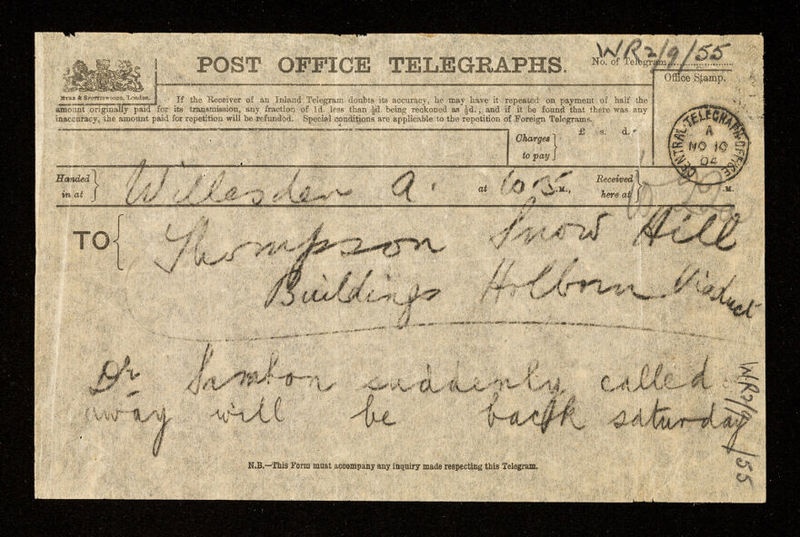 WR2/9/55
POST OFFICE TELEGRAPHS.
No. of Telegram
Office Stamp.
EYRE & SPOTTISWOODE, London.
If the Receiver of an Inland Telegram doubts its accuracy, he may have it repeated on payment of half the
amount originally paid for its transmission, any fraction of 1d. less than ½d. being reckoned as ½d.; and if it be found that there was any
inaccuracy, the amount paid for repetition will be refunded. Special conditions are applicable to the repetition of Foreign Telegrams.
Charges to pay } £ s. d.
CENTRAL TELEGRAPH OFFICE
A
NO 10
04
Handed in at } Willesden a. at 10.5 M., Received here at } M.
TO { Thompson Snow Hill
Buildings Holborn Viaduct
Dr Sambon suddenly called
away will be back saturday
WR2/9/55
N.B.—This Form must accompany any inquiry made respecting this Telegram.